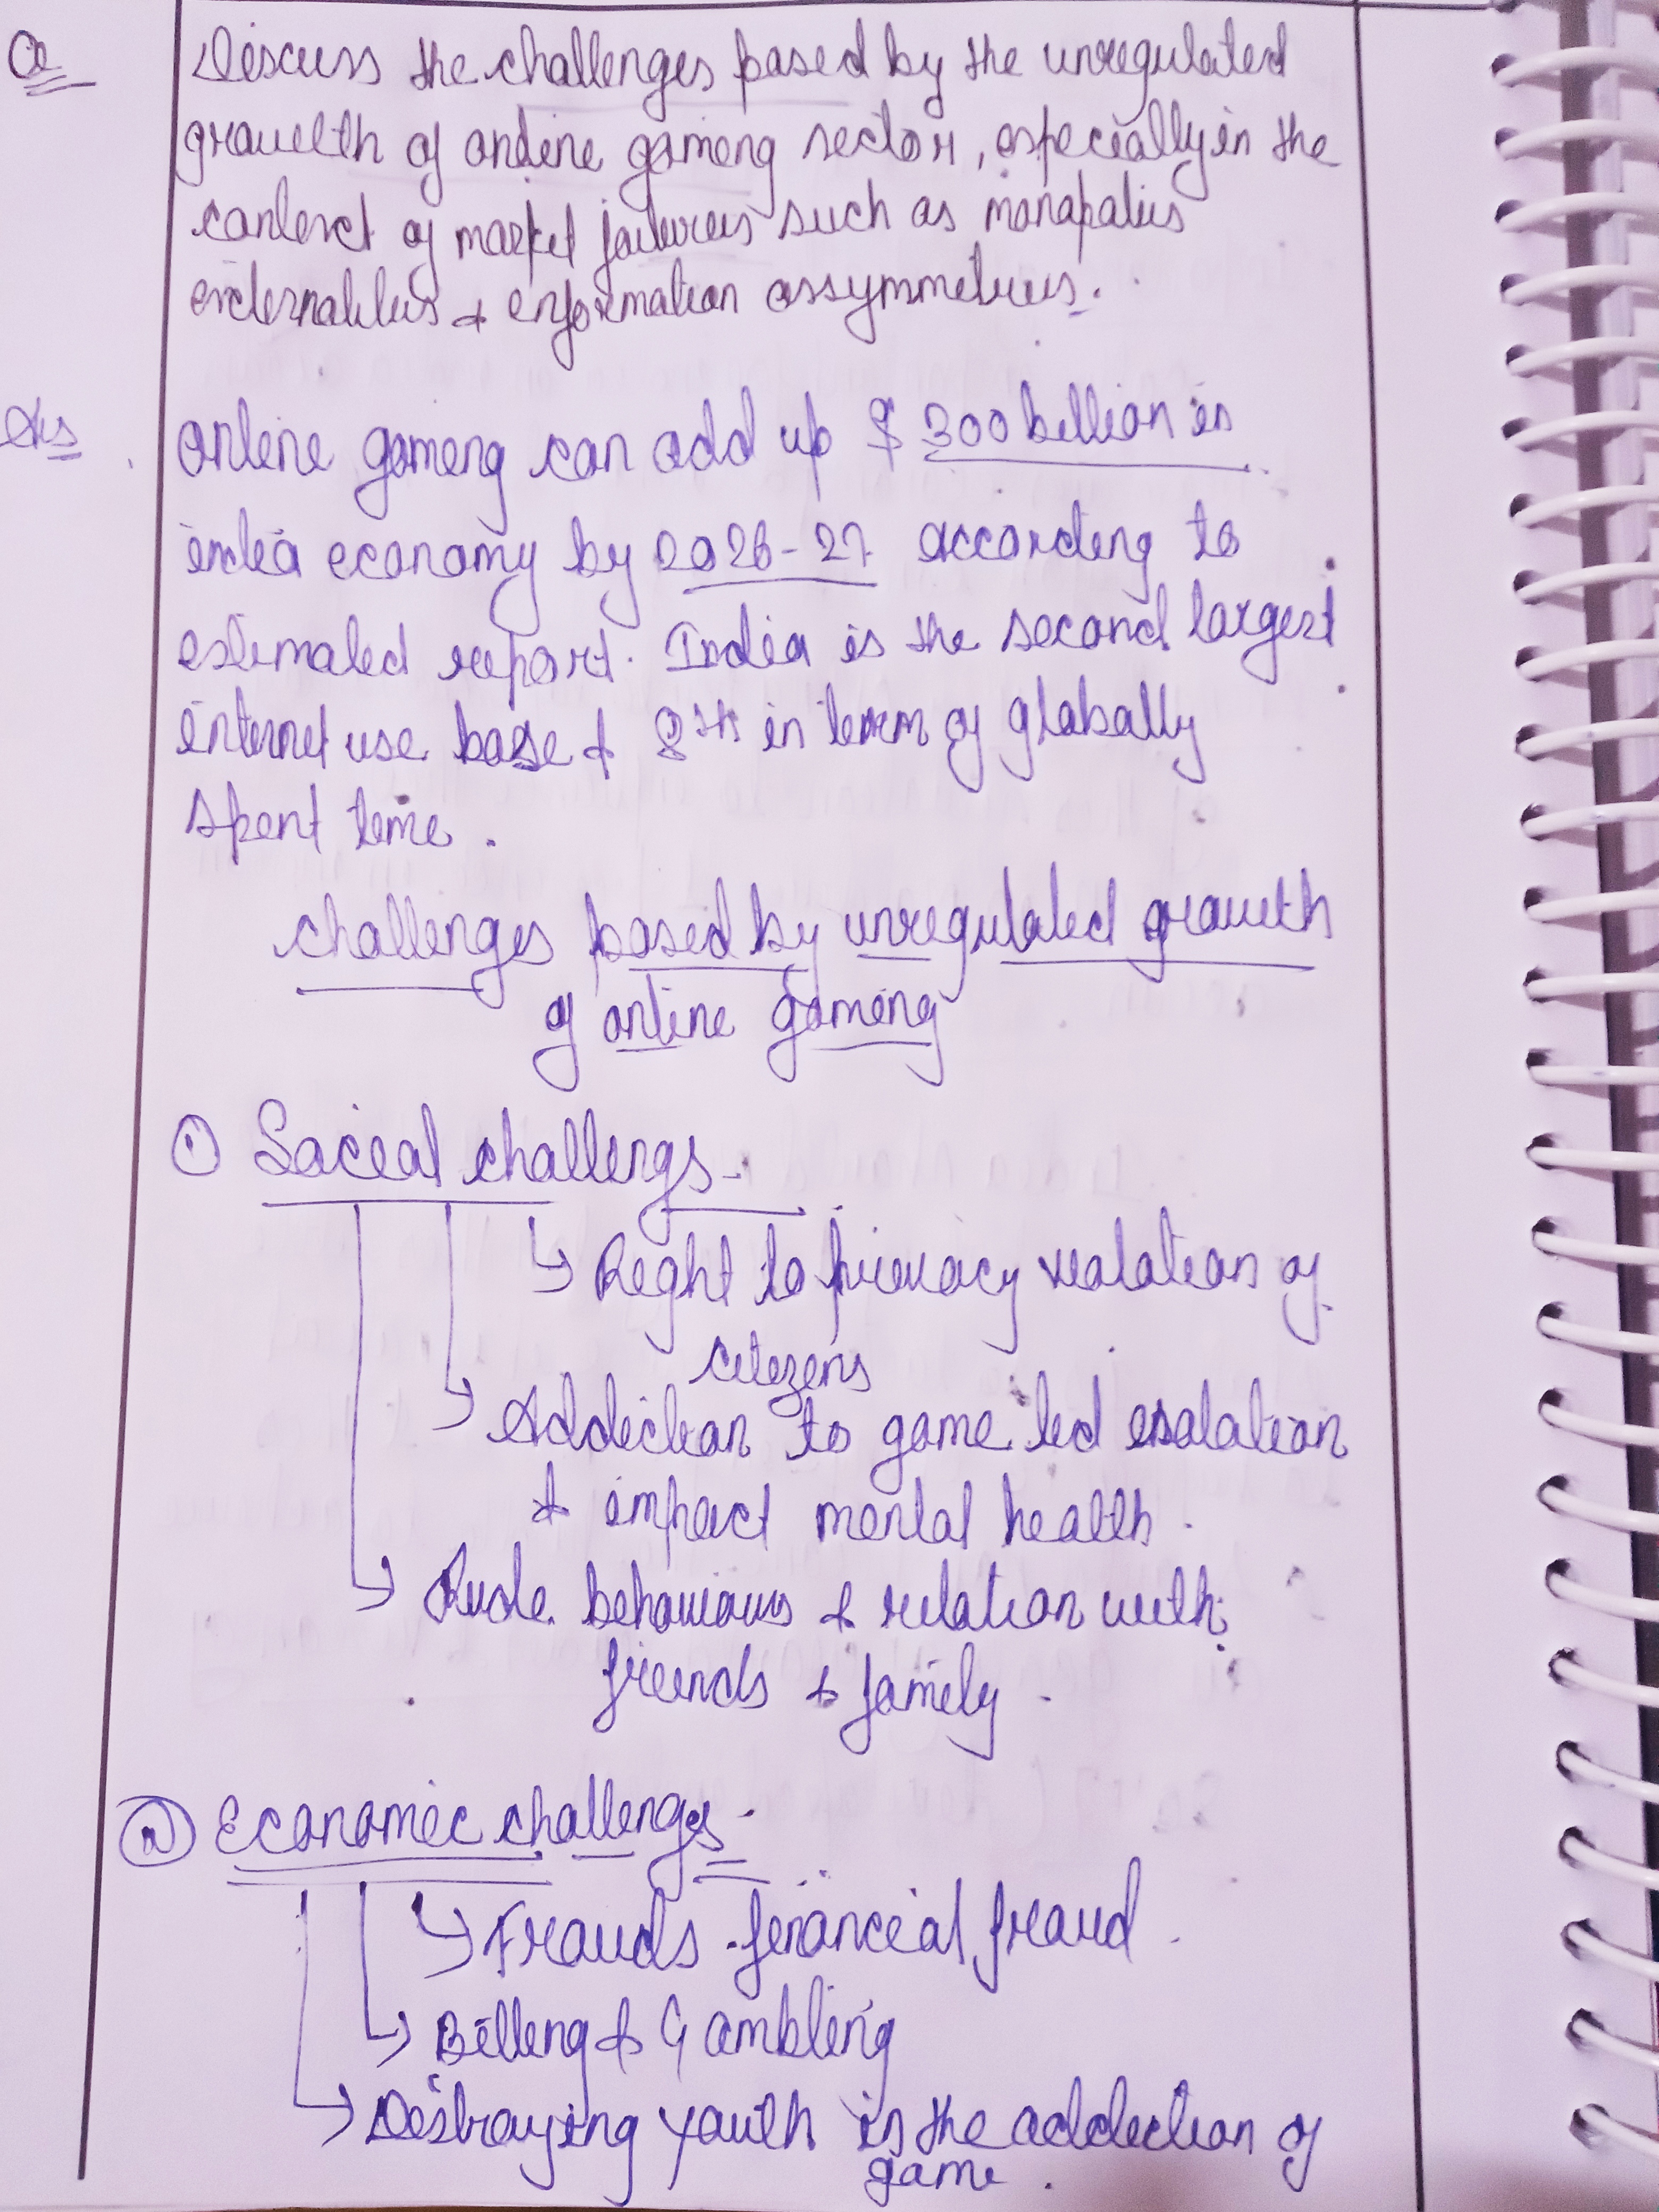 Q Discuss the challenges posed by the unregulated
growth of online gaming sector, especially in the
context of market failures such as monopolies
externalities & information assymmetries.
Ans Online gaming can add up $ 300 billion in
india economy by 2026-27 according to
estimated report. India is the second largest
internet use base & 8th in term of globally
spent time.
challenges posed by unregulated growth
of online gaming
① Social challengs -
↳ Right to privacy violation of
citizens
↳ Addiction to game led isolation
& impact mental health.
↳ Rude behaviours & relation with
friends & family.
② Economic challenges -
↳ Frauds - financial fraud.
↳ Betting & Gambling
↳ Destroying youth in the addiction of
game.